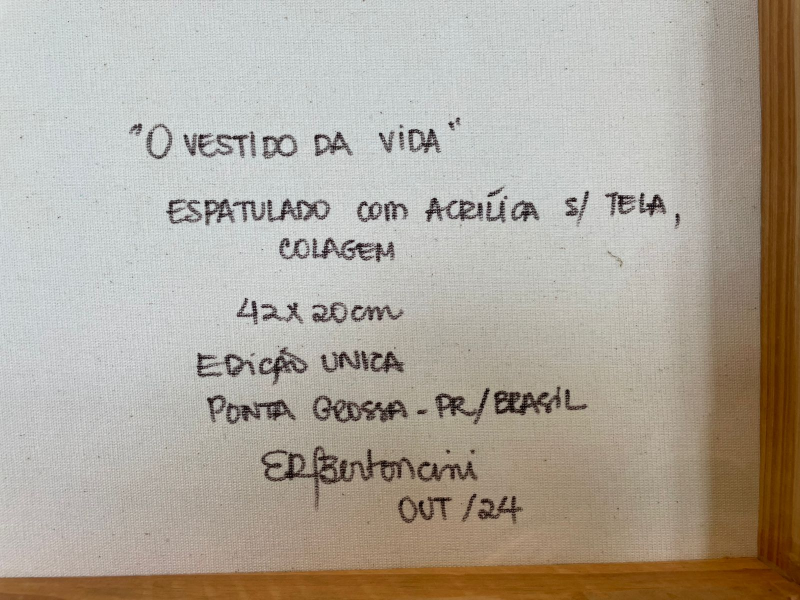 "O VESTIDO DA VIDA"
ESPATULADO COM ACRILÍCA S/ TELA,
COLAGEM
42X20cm
EDIÇÃO UNICA
PONTA GROSSA - PR/BRASIL
Bertoncini
OUT/24